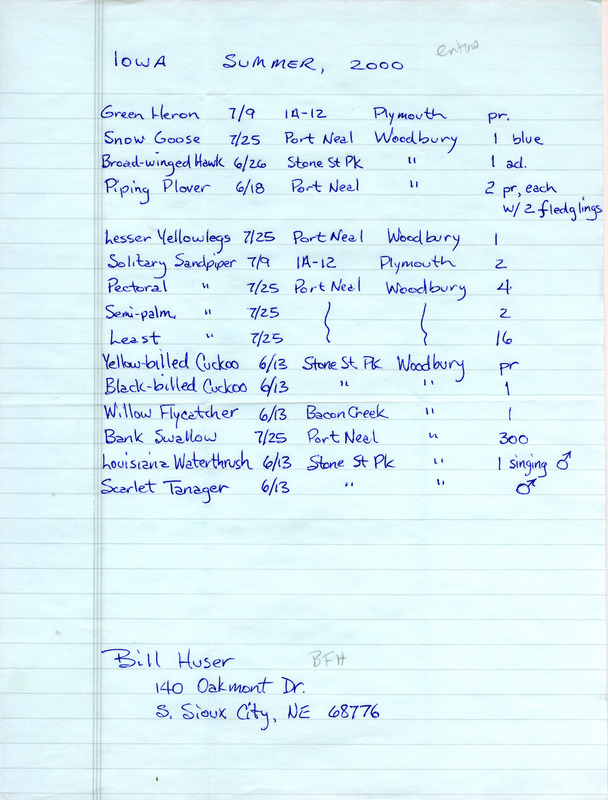 Iowa Summer, 2000
Green Heron 7/9 IA-12 Plymouth pr.
Snow Goose 7/25 Port Neal Woodbury 1 blue
Broad-winged Hawk 6/26 Stone St Pk " 1 ad.
Piping Plover 6/18 Port Neal " 2 pr, each
w/ 2 fledglings
Lesser Yellowlegs 7/25 Port Neal Woodbury 1
Solitary Sandpiper 7/9 IA-12 Plymouth 2
Pectoral " 7/25 Port Neal Woodbury 4
Semi-palm. " 7/25 2
Least " 7/25 16
Yellow-billed Cuckoo 6/13 Stone St Pk Woodbury pr
Black-billed Cuckoo 6/13 " " 1
Willow Flycatcher 6/13 Bacon Creek " 1
Bank Swallow 7/25 Port Neal " 300
Louisiana Waterthrush 6/13 Stone St Pk " 1 singing ♂
Scarlet Tanager 6/13 " " ♂
Bill Huser BFH
140 Oakmont Dr.
S. Sioux City, NE 68776